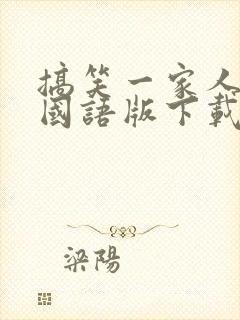 搞笑一家人
國語版下載
梁陽